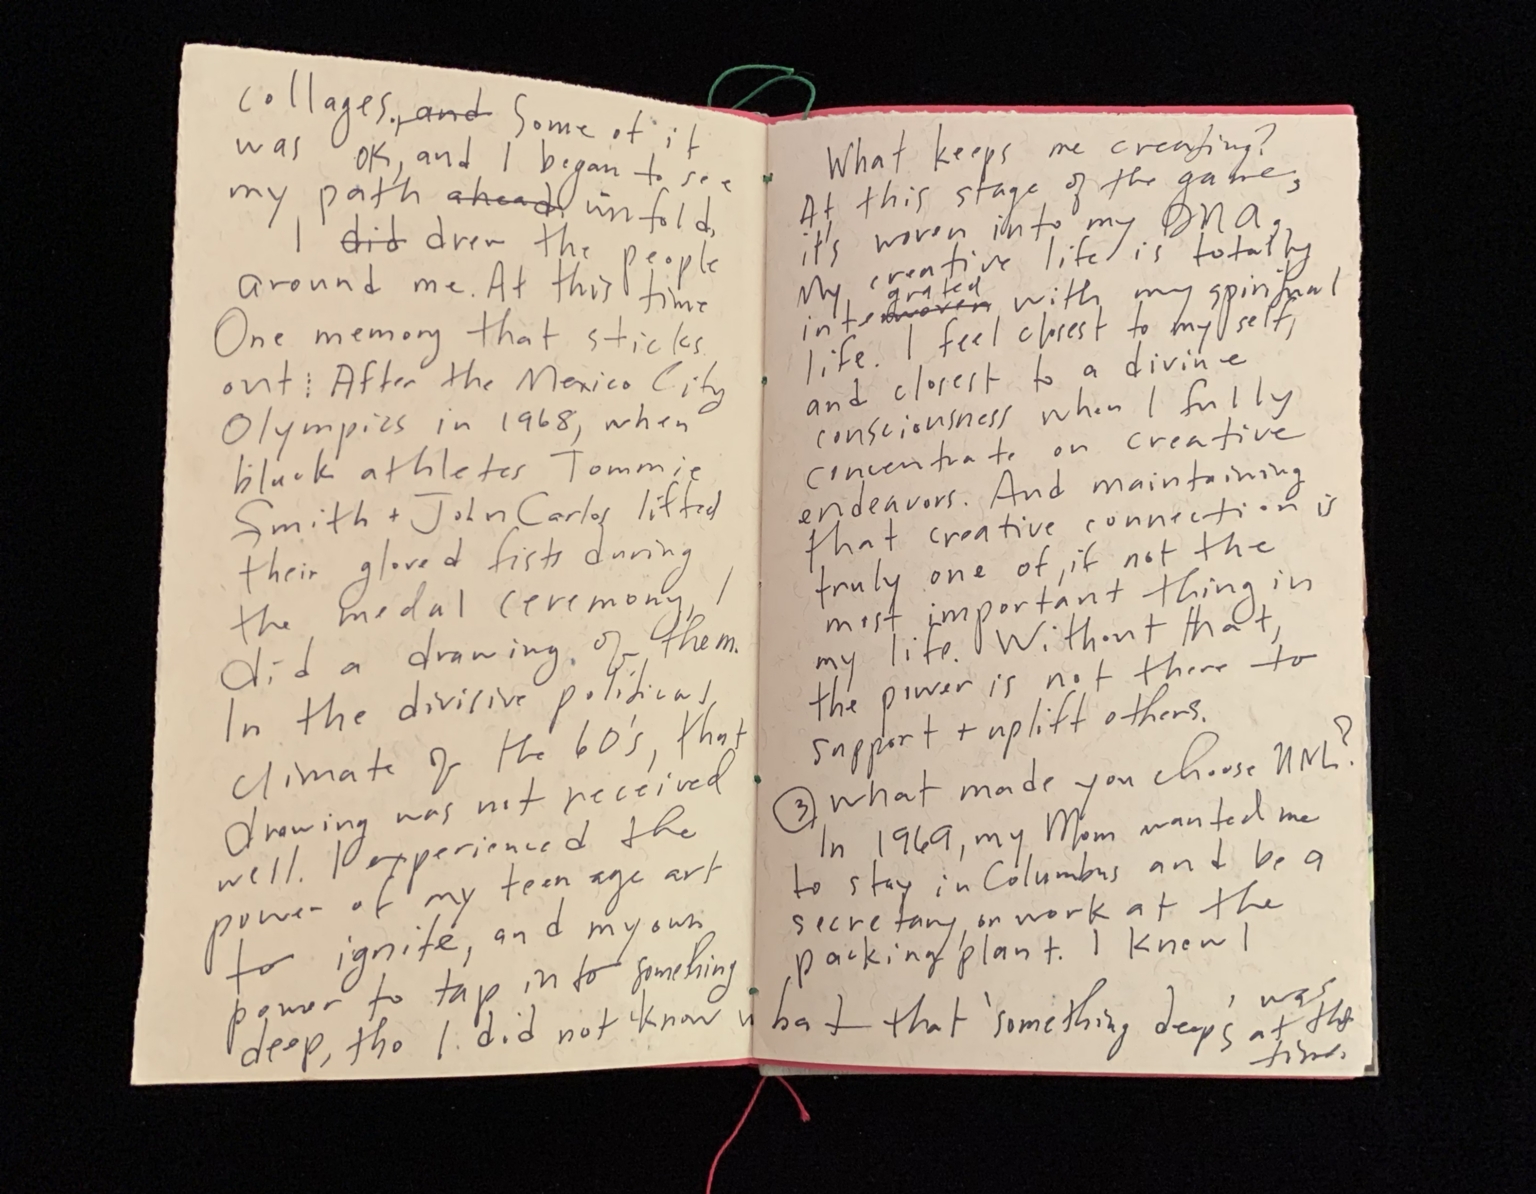 collages, and Some of it
was OK, and I began to see
my path ahead unfold.
I did drew the people
around me. At this time
One memory that sticks
out: After the Mexico City
Olympics in 1968, when
black athletes Tommie
Smith + John Carlos lifted
their gloved fists during
the medal ceremony, I
did a drawing of them.
In the divisive political
climate of the 60's, that
drawing was not received
well. I experienced the
power of my teen age art
to ignite, and my own
power to tap into something
deep, tho I did not know what that 'something deep' was at the time.
What keeps me creating?
At this stage of the game,
it's woven into my DNA.
My creative life is totally
interwoven grated with my spiritual
life. I feel closest to my self,
and closest to a divine
consciousness when I fully
concentrate on creative
endeavors. And maintaining
that creative connection is
truly one of, if not the
most important thing in
my life. Without that,
the power is not there to
support + uplift others.
3 What made you choose UNL?
In 1969, my Mom wanted me
to stay in Columbus and be a
secretary, or work at the
packing plant. I knew I